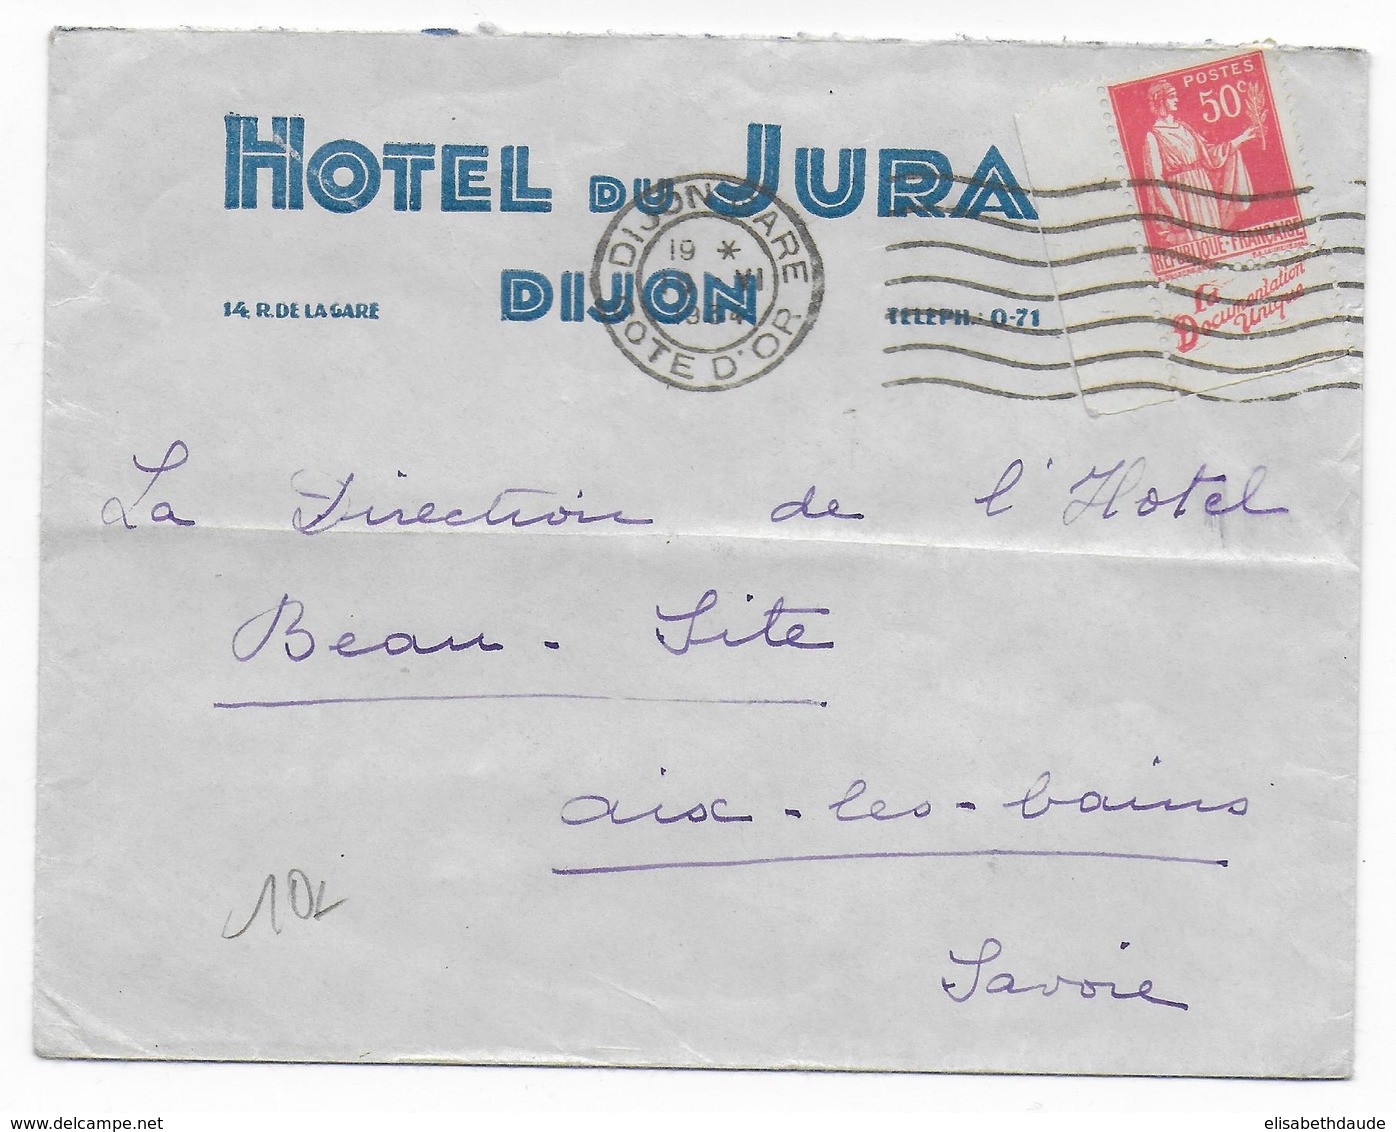 HOTEL DU JURA
14, R. DE LA GARE
DIJON
TELEPH.: 0-71
DIJON GARE
19 *
VI
1934
COTE D'OR
POSTES
50c
REPUBLIQUE·FRANÇAISE
La
Documentation
Unique
La Direction de l'Hotel
Beau-Site
aix-les-bains
Savoie
elisabethdaude